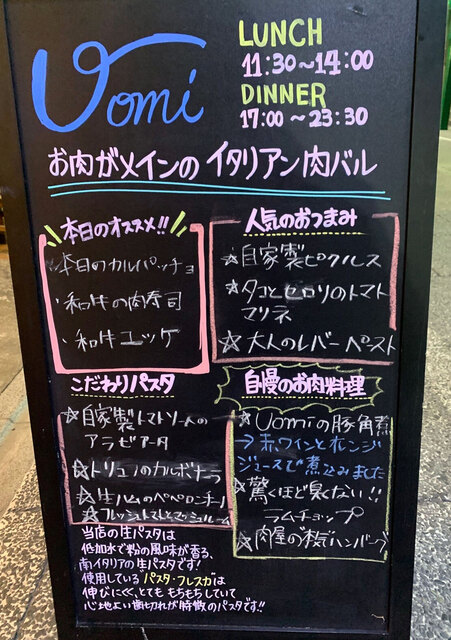 Uomi
LUNCH
11:30〜14:00
DINNER
17:00〜23:30
お肉がメインのイタリアン肉バル
本日のオススメ!!
本日のカルパッチョ
・和牛の肉寿司
・和牛ユッケ
人気のおつまみ
☆自家製ピクルス
☆タコとセロリのトマト
マリネ
☆大人のレバーペースト
こだわりパスタ
☆自家製トマトソースの
アラビアータ
☆トリュフのカルボナーラ
☆生ハムのペペロンチーノ
☆フレッシュトマトとマッシュルーム
当店の生パスタは
低加水で粉の風味が香る、
南イタリアの生パスタです!
使用しているパスタ・フレスカは
伸びにくく、とてももちもちしていて
心地よい歯切れが特徴のパスタです!!
自慢のお肉料理
☆Uomiの豚角煮
→赤ワインとオレンジ
ジュースで煮込みました
☆驚くほど臭くない!!
ラムチョップ
☆肉屋の本気ハンバーグ